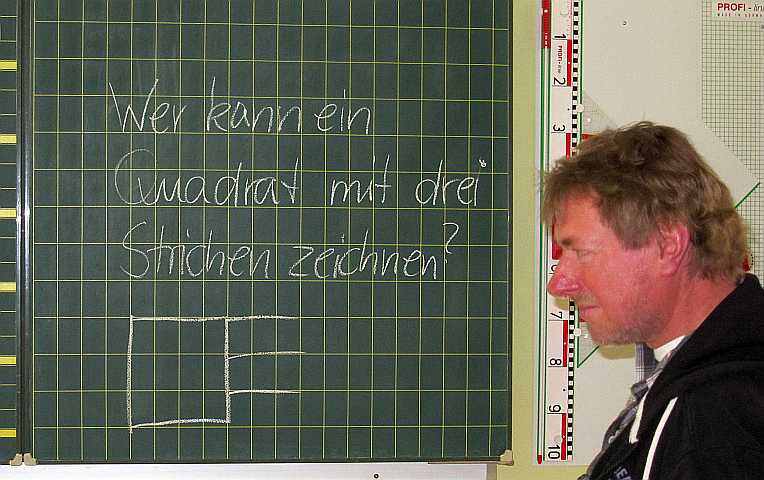 PROFI - line
MADE IN GERMANY
Wer kann ein
Quadrat mit drei
Strichen zeichnen?
1
PROFI
2
3
6
7
8
9
10